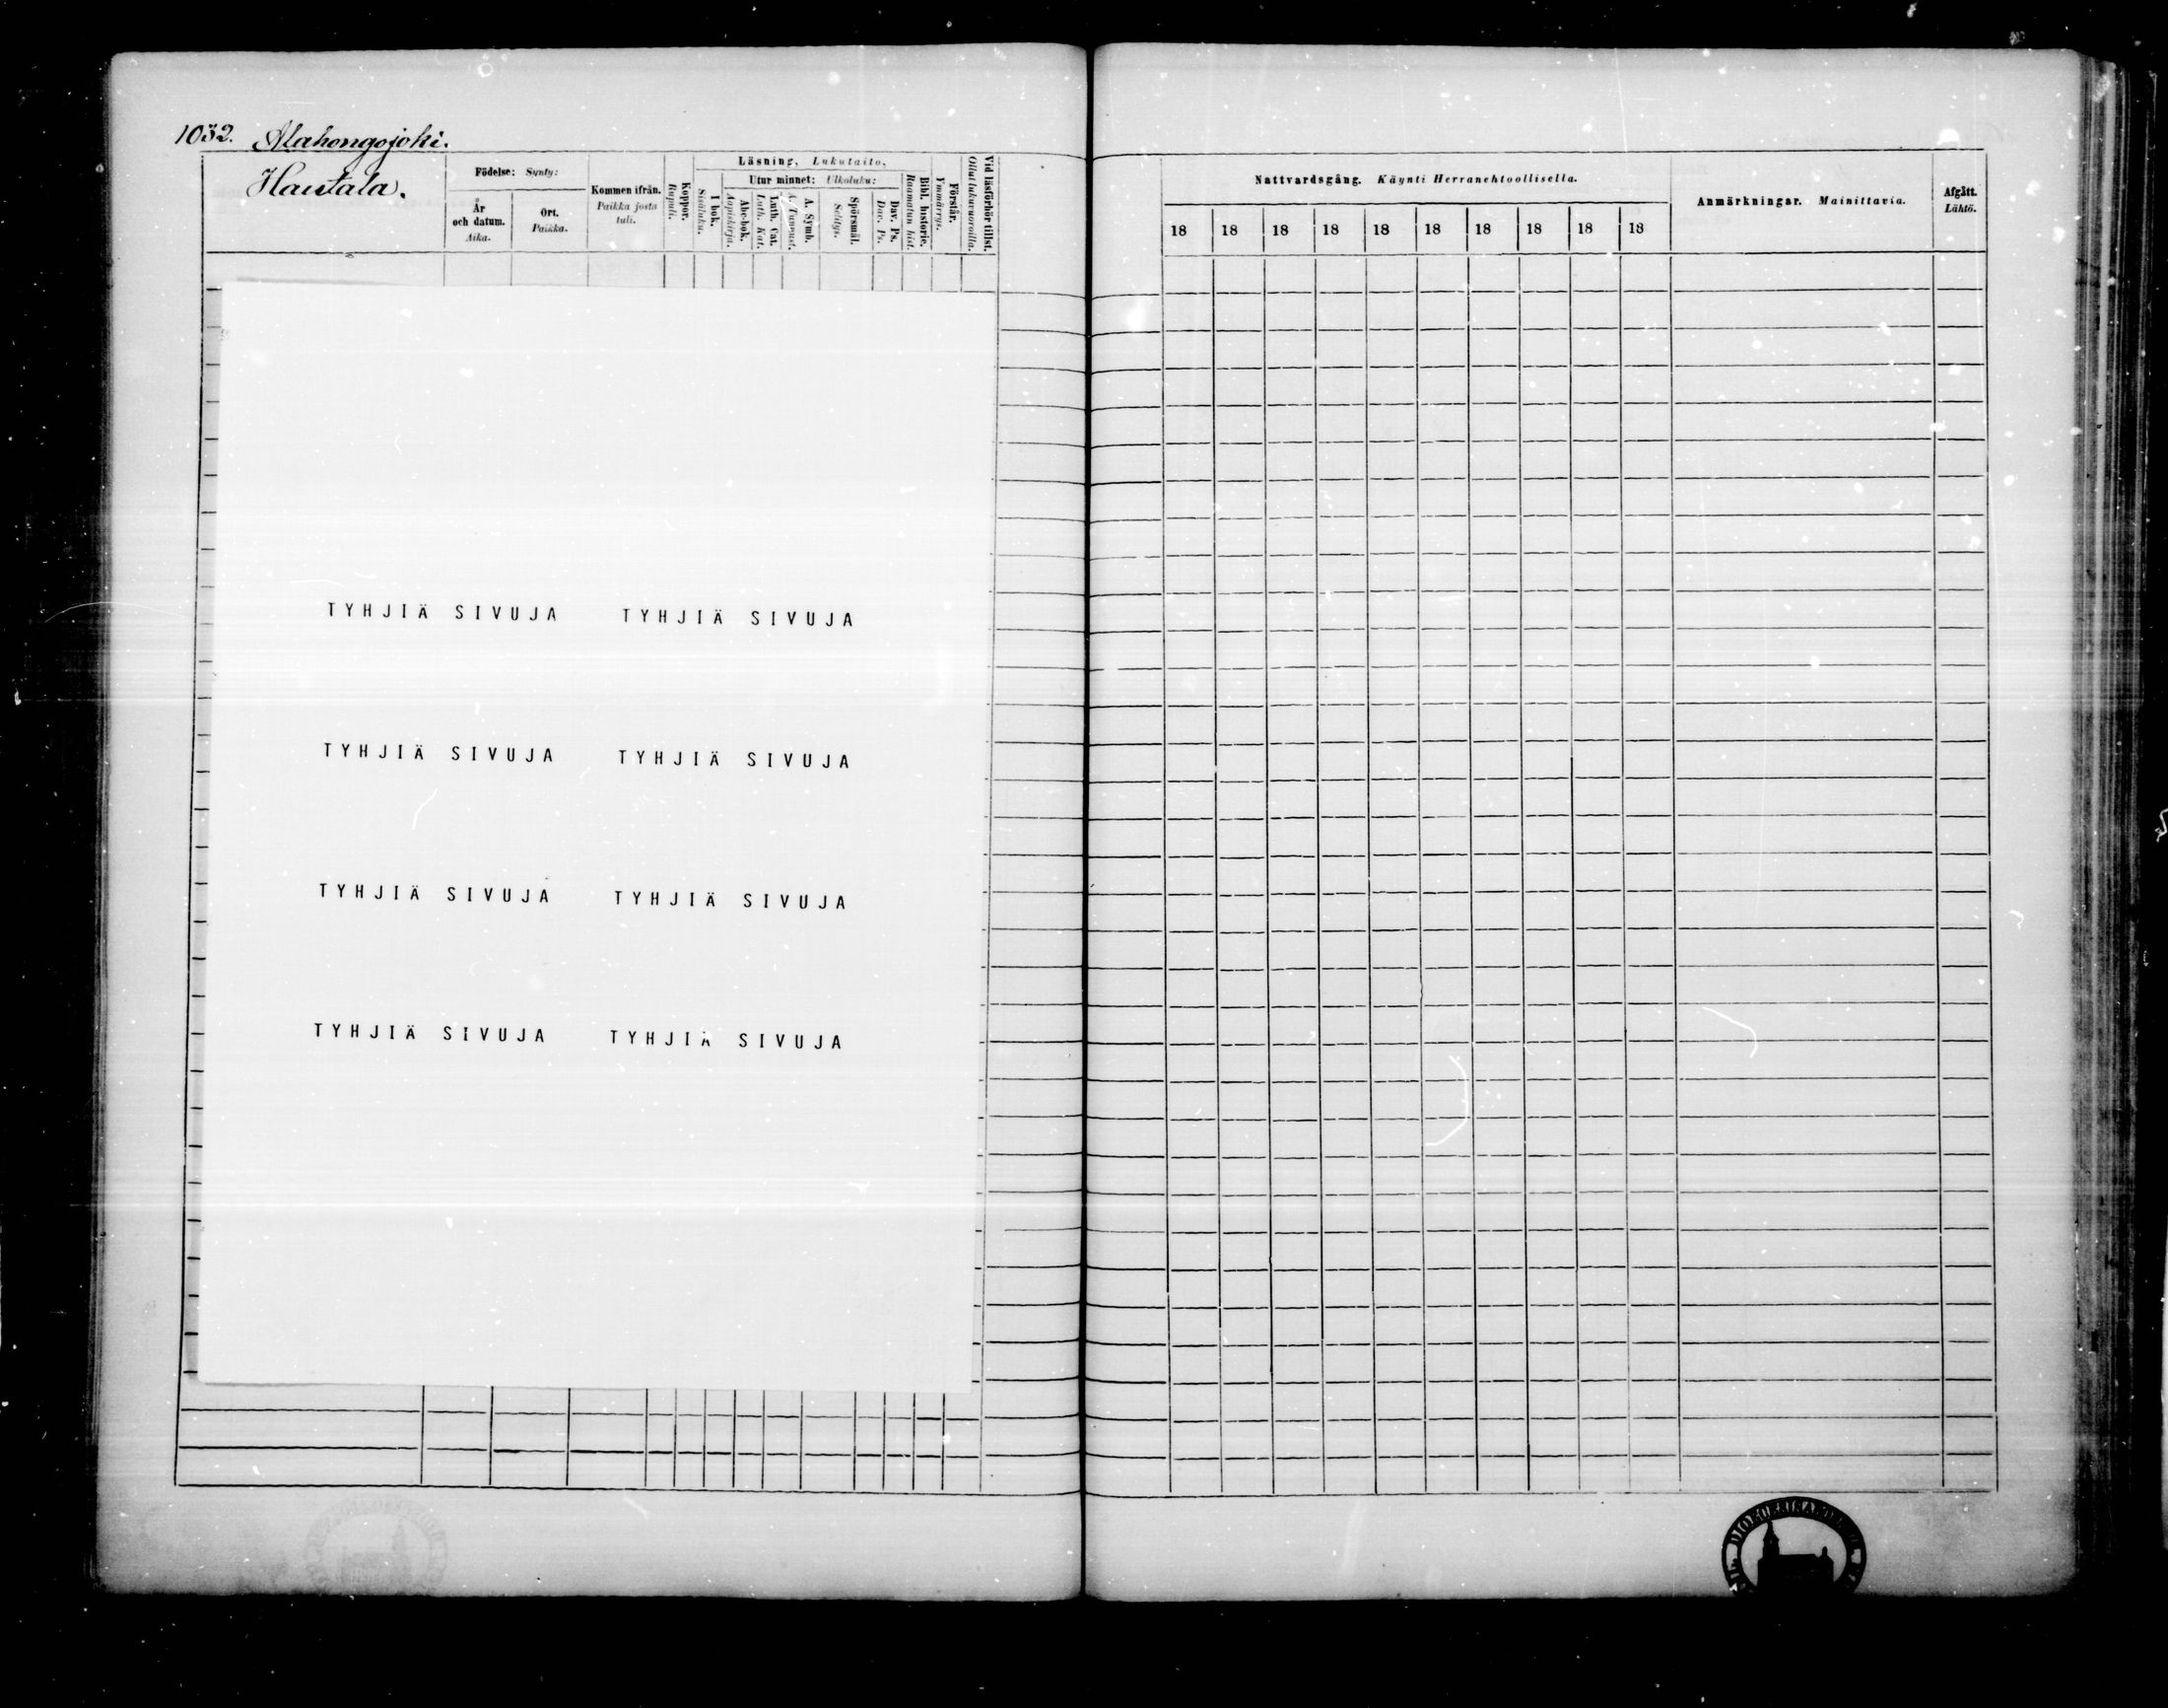 1032. Alahongojoki.
Hautala.
Födelse: Synty:
År och datum. Aika.
Ort. Paikka.
Kommen ifrån. Paikka josta tuli.
Koppor. Rupuli.
Läsning, Lukutaito,
I bok. Sisäluku.
Utur minnet: Ulkoluku:
Abc-bok. Aapiskirja.
Luth. Cat. Luth. Kat.
A. Symb. A. Tunnust.
Spörsmål. Selitys.
Dav. Ps. Dav. Ps.
Bibl. historie. Raamatun hist.
Förstår. Ymmärrys.
Vid läsförhör tillst. Ollut lukuvuoroilla.
TYHJIÄ SIVUJA TYHJIÄ SIVUJA
TYHJIÄ SIVUJA TYHJIÄ SIVUJA
TYHJIÄ SIVUJA TYHJIÄ SIVUJA
TYHJIÄ SIVUJA TYHJIÄ SIVUJA
Nattvardsgång. Käynti Herranehtoollisella.
18 18 18 18 18 18 18 18 18 18
Anmärkningar. Mainittavia.
Afgått. Lähtö.